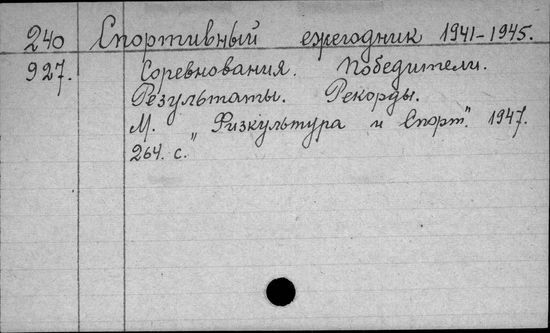 240 Спортивный ежегодник 1941-1945.
927. Соревнования. Победители.
Результаты. Рекорды.
М. „Физкультура и Спорт". 1947.
264. с.